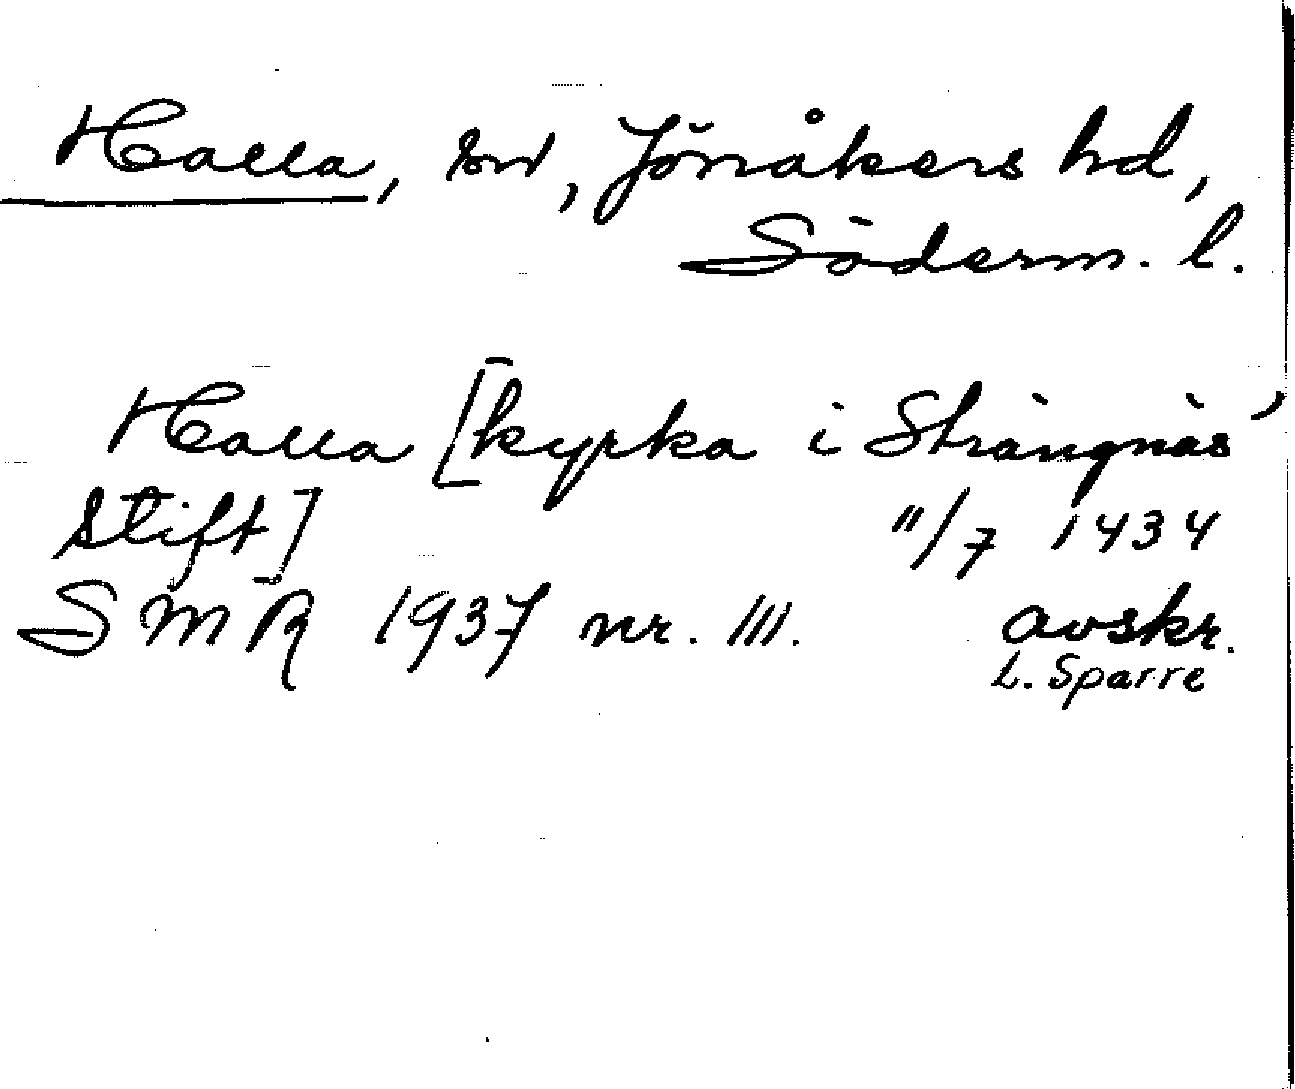 Halla, sn, Jönåkers hd,
Söderm. l.
Halla [kyrka i Strängnäs
stift] 11/7 1434
SMR 1937 nr. 111. avskr.
L. Sparre